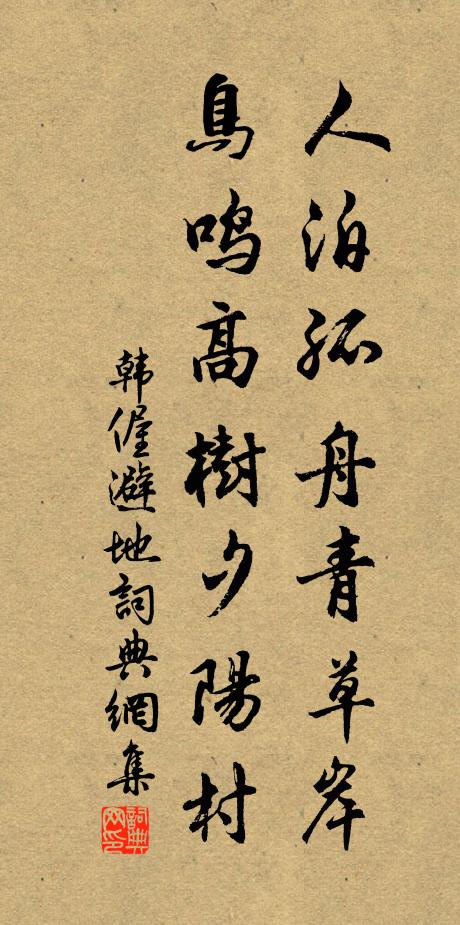 人泊孤舟青草岸
鳥鳴高樹夕陽村
韓偓避地詞典網集
詞典网印